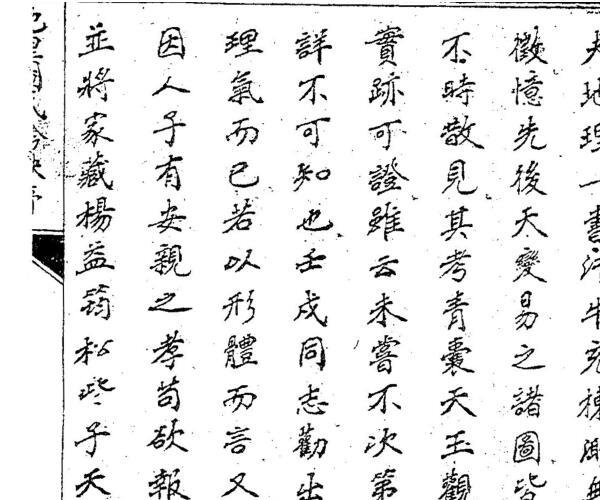 夫地理一書汗牛充棟
徵憶先後天變易之諸圖皆
不時散見其考青囊天玉觀
實跡可證雖云未嘗不次第
詳不可知也壬戌同志勸出
理氣而已若以形體而言又
因人子有安親之孝苟欲報
並將家藏楊益筠松些子天